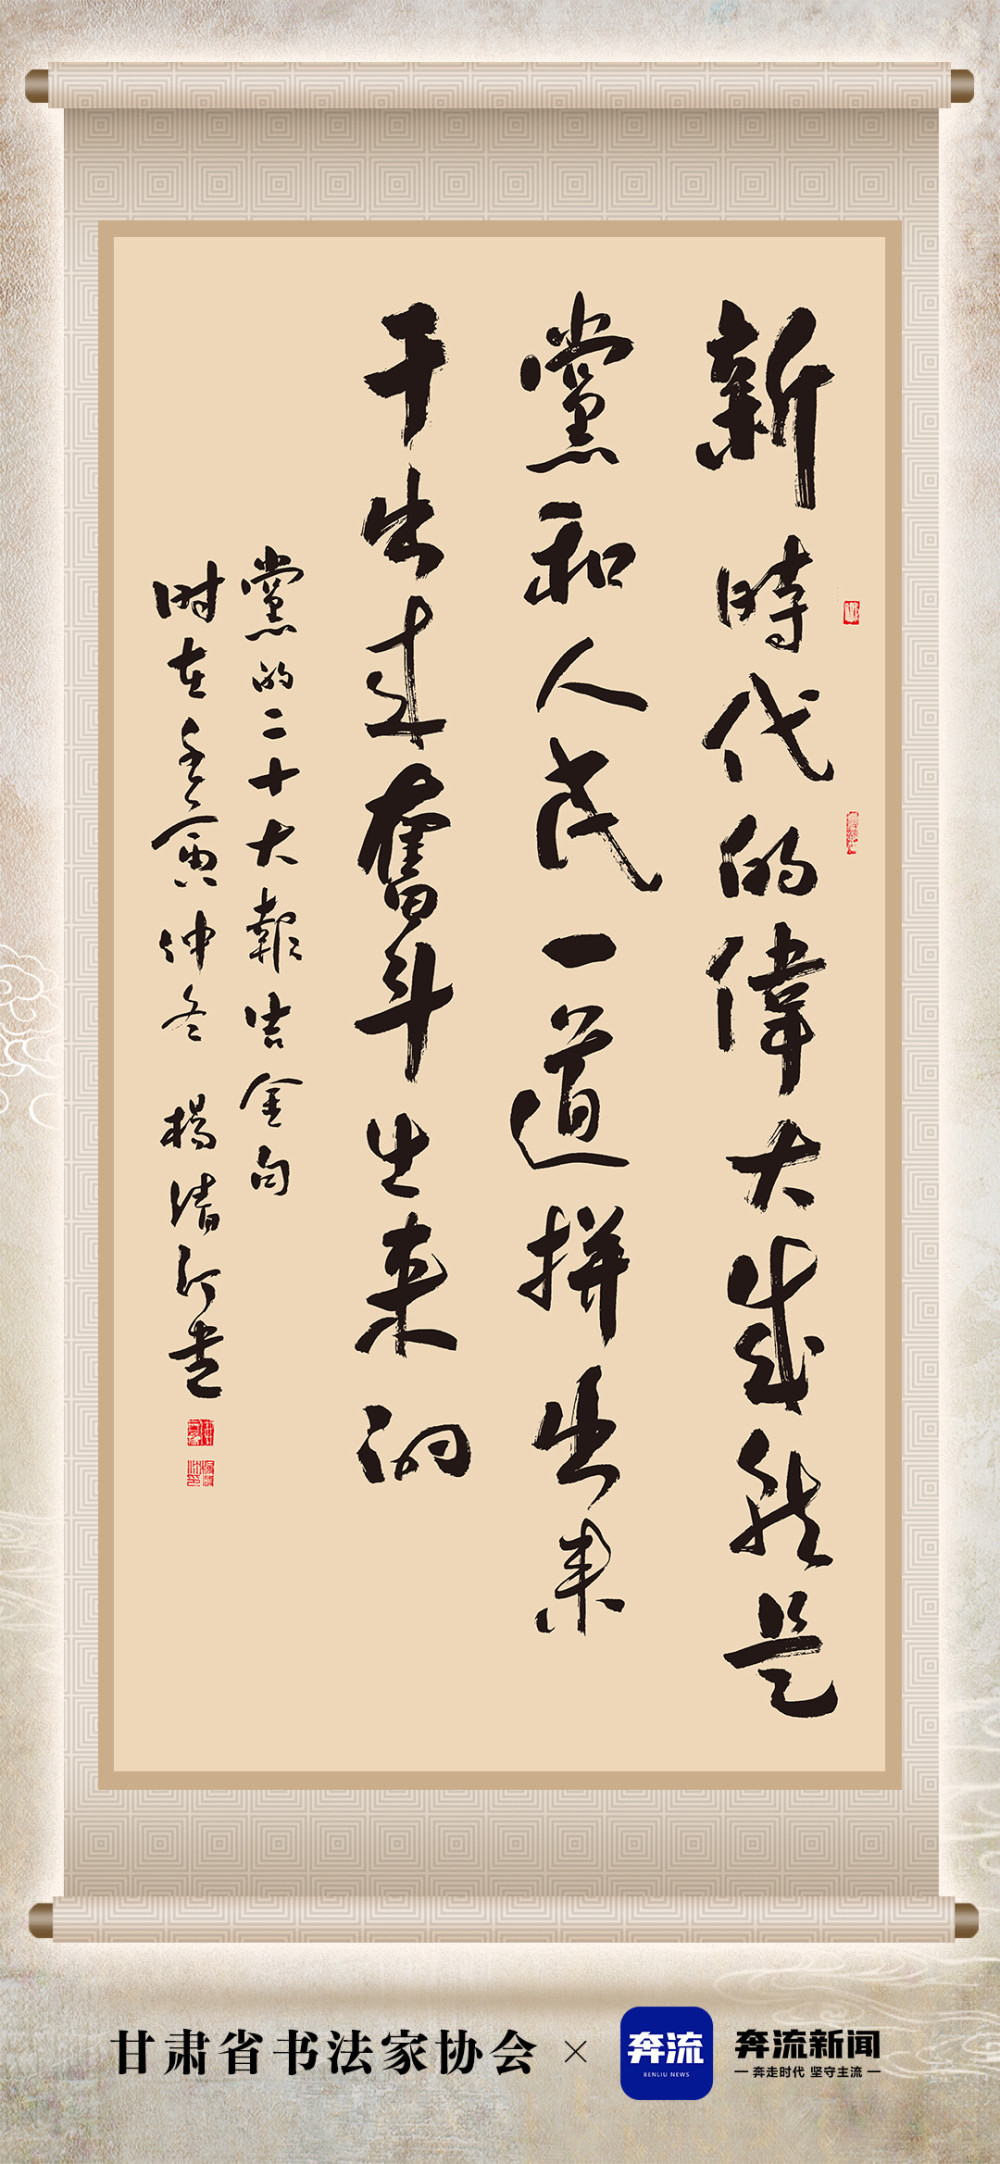 新時代的偉大成就是
黨和人民一道拼出来
干出来奮斗出来的
黨的二十大報告金句
时在壬寅仲冬 楊清汀书
甘肃省书法家协会 × 奔流 奔流新闻
BENLIU NEWS
奔走时代 坚守主流